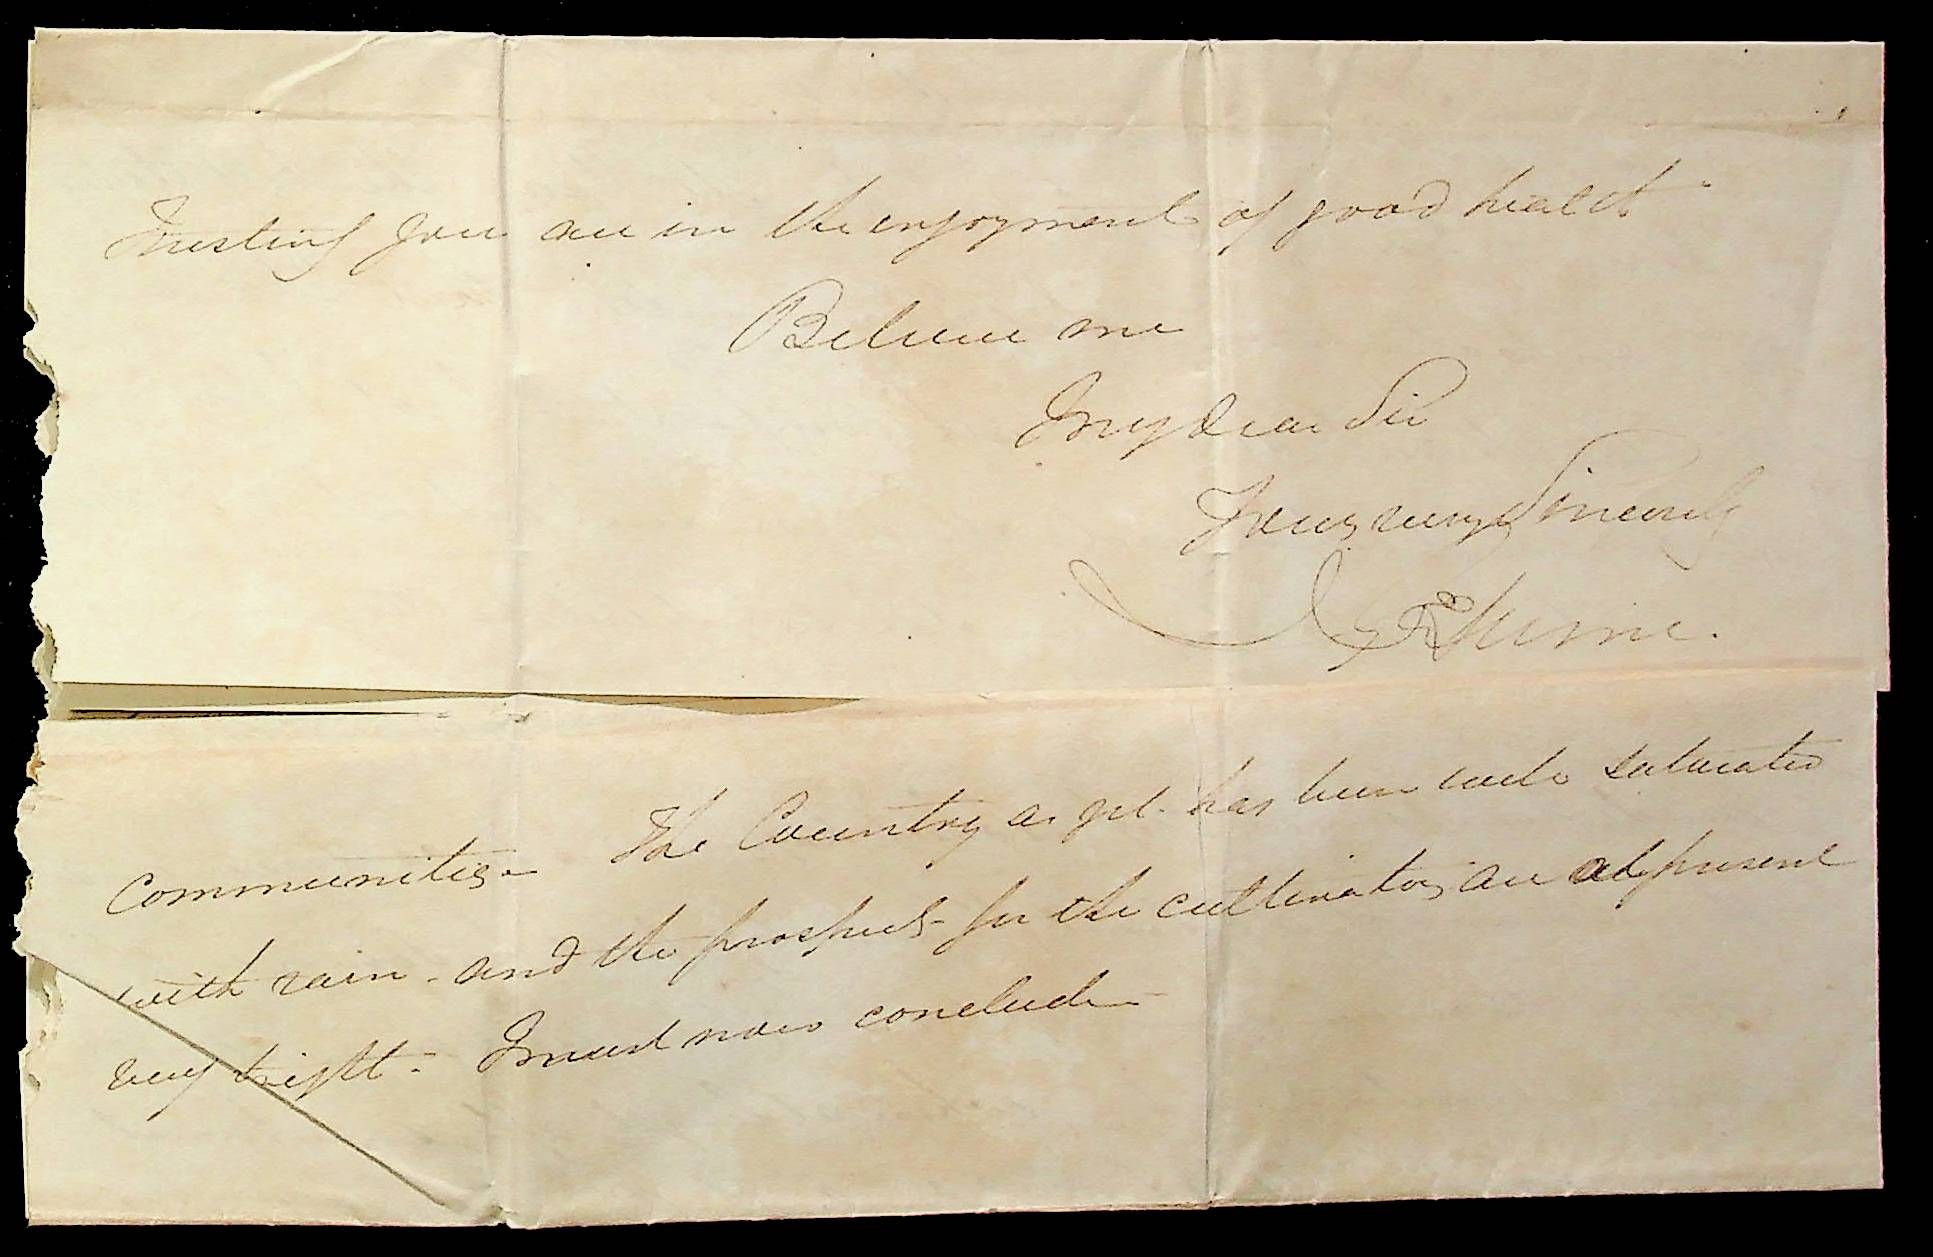 Trusting you are in the enjoyment of good health
Believe me
My dear Sir
Yours very Sincerely
communities - The Country as yet has been well saturated
with rain - and the prospects for the cultivators are at present
very bright - I must now conclude -